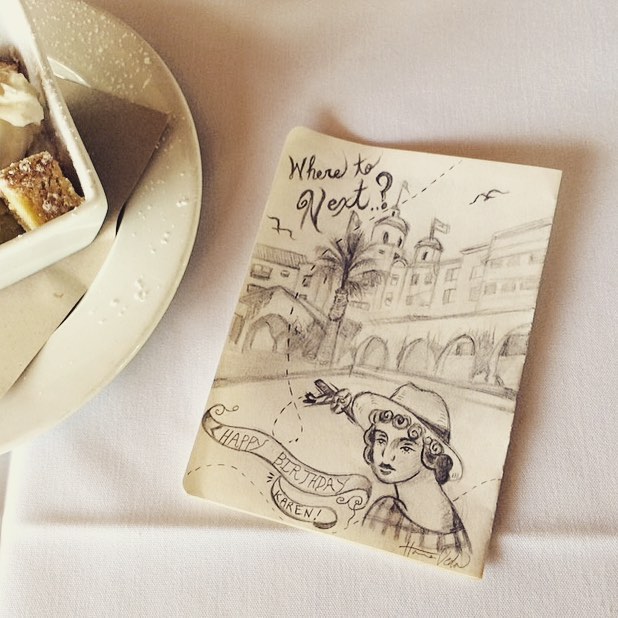 Where to
Next..?
HAPPY BIRTHDAY
KAREN!